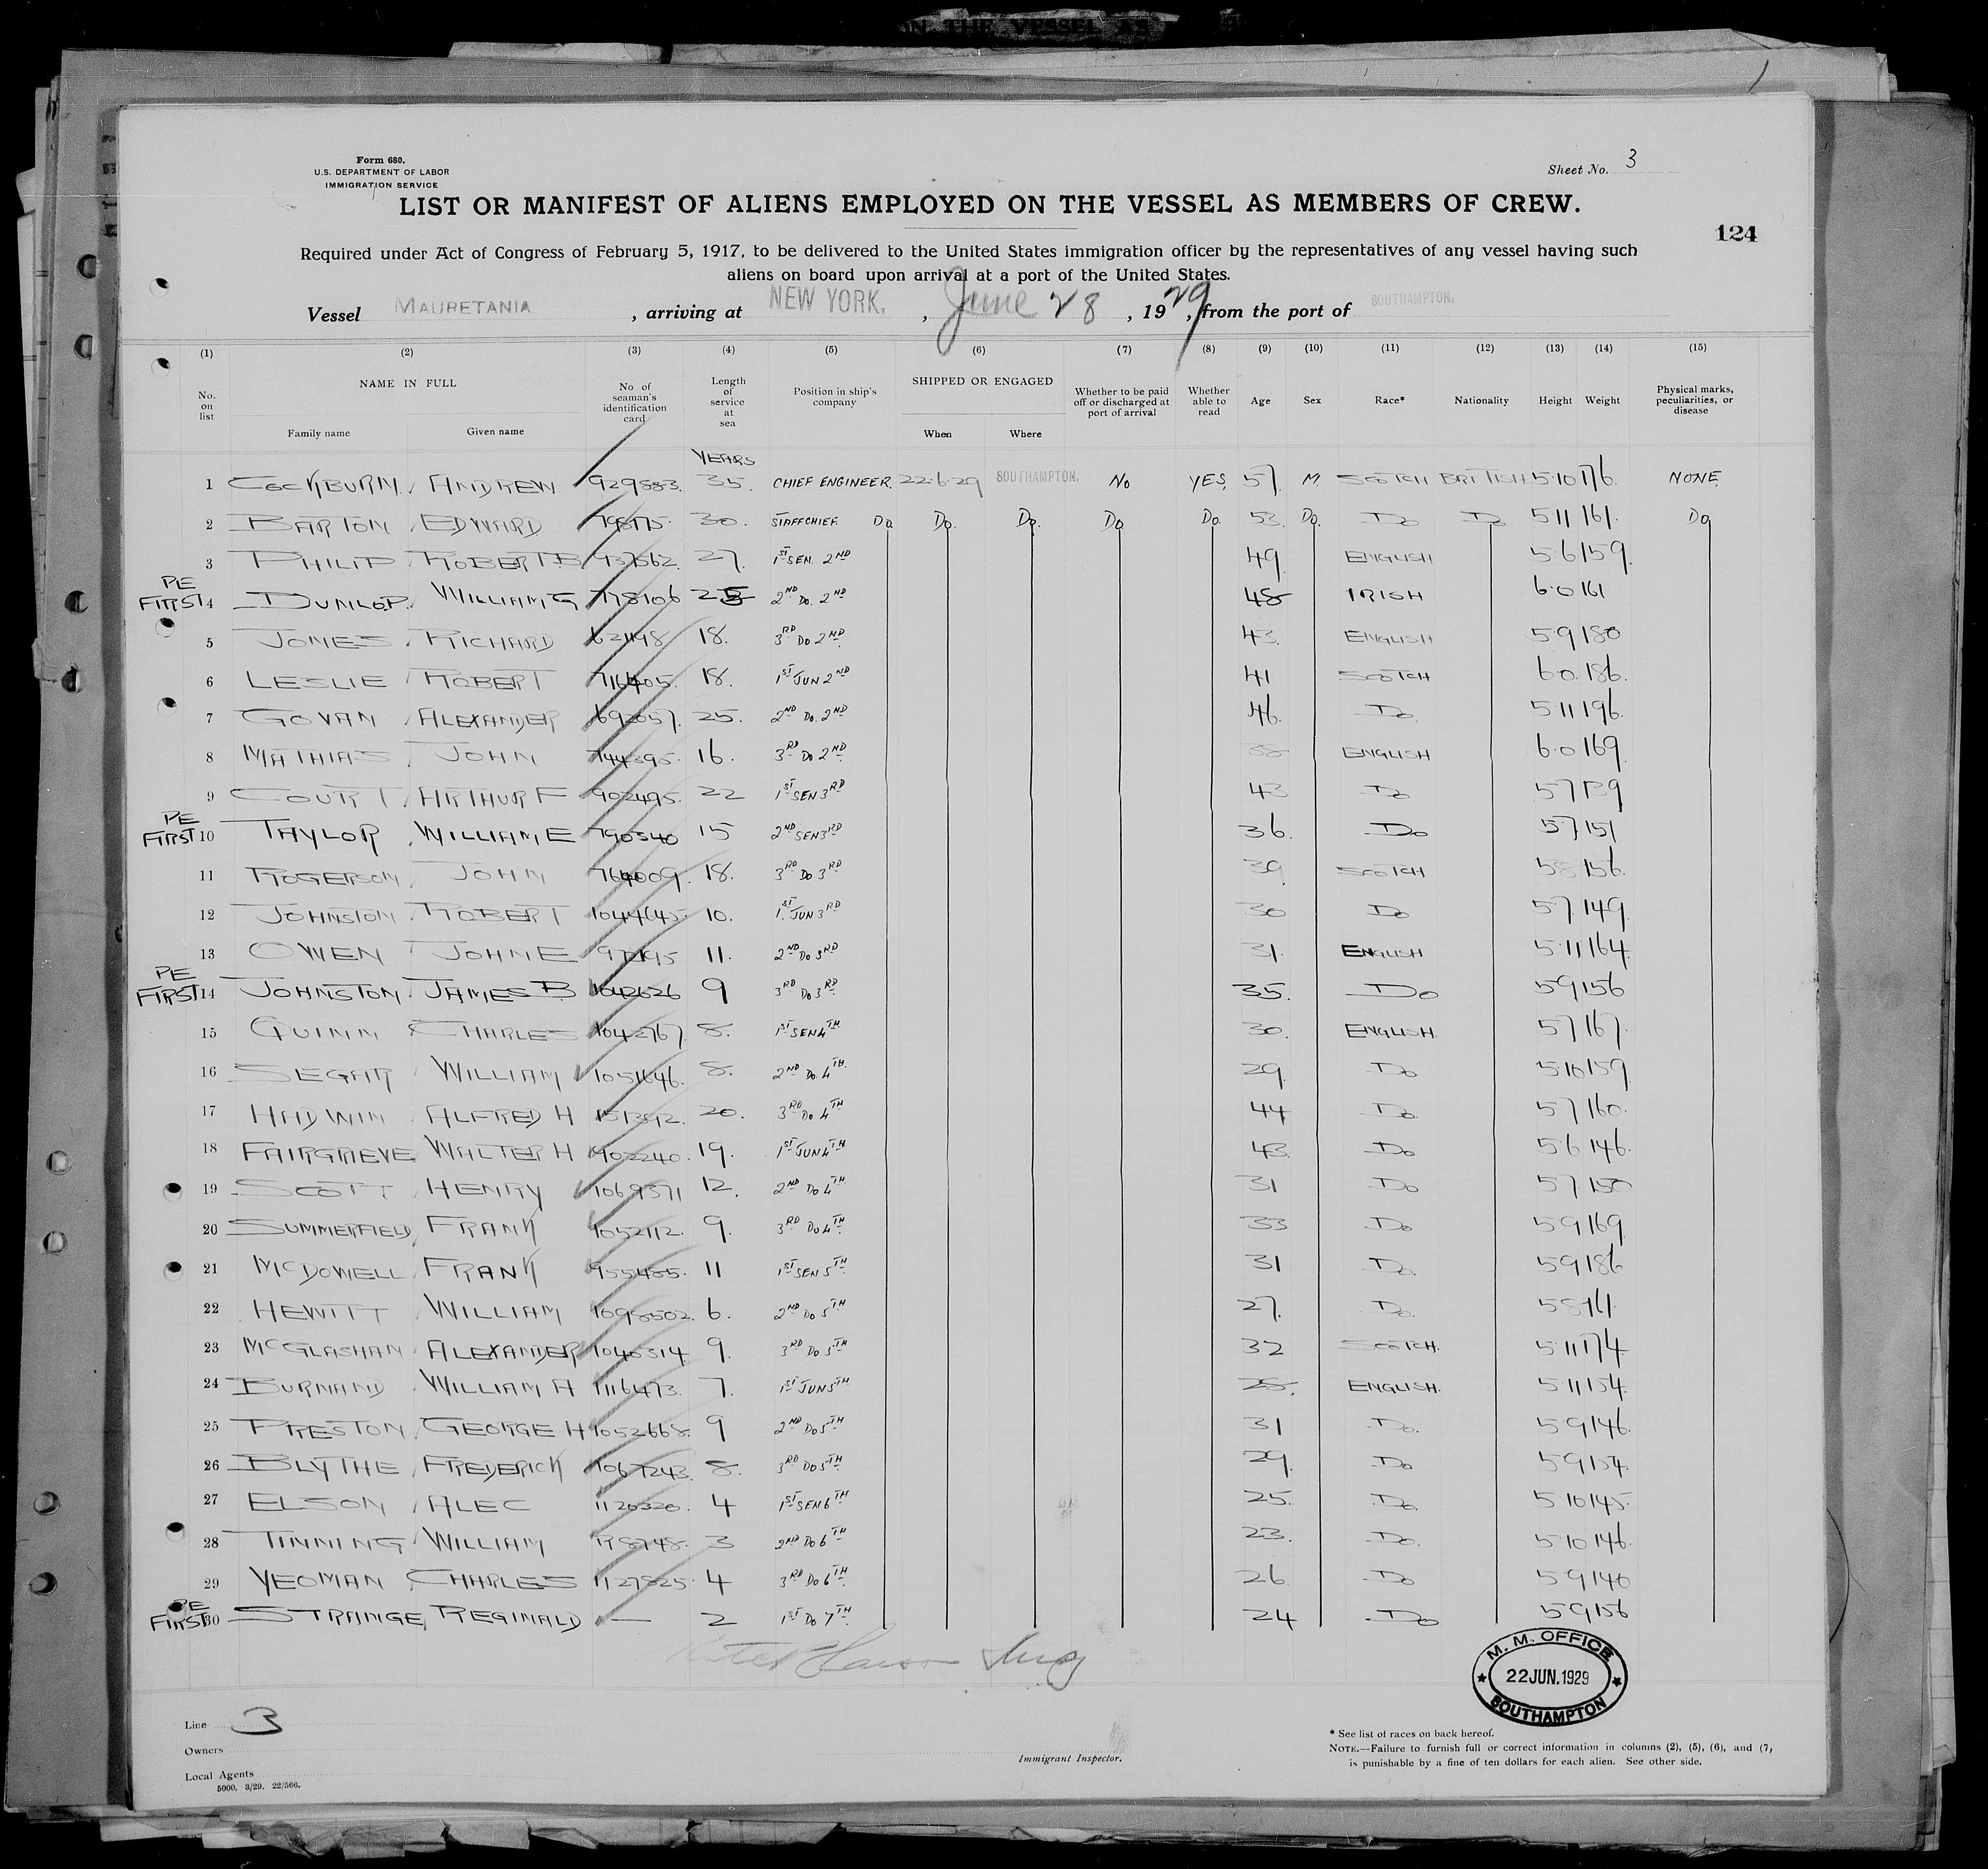 Form 680.
U.S. DEPARTMENT OF LABOR
IMMIGRATION SERVICE
Sheet No. 3
LIST OR MANIFEST OF ALIENS EMPLOYED ON THE VESSEL AS MEMBERS OF CREW.
124
Required under Act of Congress of February 5, 1917, to be delivered to the United States immigration officer by the representatives of any vessel having such
aliens on board upon arrival at a port of the United States.
Vessel MAURETANIA, arriving at NEW YORK., June 28, 1929, from the port of SOUTHAMPTON.
(1) (2) (3) (4) (5) (6) (7) (8) (9) (10) (11) (12) (13) (14) (15)
No. on list NAME IN FULL Family name Given name No. of seaman's identification card Length of service at sea Position in ship's company SHIPPED OR ENGAGED When Where Whether to be paid off or discharged at port of arrival Whether able to read Age Sex Race* Nationality Height Weight Physical marks, peculiarities, or disease
YEARS
1 COCKBURN ANDREW 929883 35. CHIEF ENGINEER. 22.6.29 SOUTHAMPTON. No YES 57 M. SCOTCH BRITISH 5.10 176. NONE
2 BARTON EDWARD 30. STAFF CHIEF. Do Do. Do. Do Do. 53. Do. Do Do 5.11 161. Do
3 PHILIP ROBERT B 937562 27. 1ST SEN. 2ND 49 ENGLISH 5.6 159.
PE FIRST 4 DUNLOP. WILLIAM G 778106 2ND Do. 2ND 48 IRISH 6.0 161
5 JONES RICHARD 18. 3RD Do 2ND 43. ENGLISH 5.9 180
6 LESLIE ROBERT 716405. 18. 1ST JUN 2ND 41 SCOTCH 6.0. 186.
7 GOVAN ALEXANDER 692057. 25. 2ND Do. 2ND 46. Do. 5.11 196.
8 MATHIAS JOHN 744395. 16. 3RD Do 2ND 38 ENGLISH 6.0 169.
9 COURT ARTHUR F 902495. 22 1ST SEN 3RD 43 Do 5.7 139
PE FIRST 10 TAYLOR WILLIAM E 790340 15 2ND SEN 3RD 36. Do 5.7 151
11 ROGERSON JOHN 764009. 18. 3RD Do 3RD 39 SCOTCH 5.8 156.
12 JOHNSTON ROBERT 1044645. 10. 1ST JUN 3RD 30 Do 5.7. 149.
13 OWEN JOHN E 11. 2ND Do 3RD 31. ENGLISH 5.11 164.
PE FIRST 14 JOHNSTON JAMES B 1042626 9 3RD Do 3RD 35. Do 5.9 156
15 QUINN CHARLES 1042767. 8. 1ST SEN 4TH 30. ENGLISH. 5.7 167.
16 SEGAR WILLIAM 1051646. 8. 2ND Do. 4TH. 29. Do 5.10 159.
17 HADWIN ALFRED H 20. 3RD Do 4TH 44 Do. 5.7 160.
18 FAIRGRIEVE WALTER H 902240. 19. 1ST JUN 4TH 43. Do 5.6 146.
19 SCOTT HENRY 1069371 12. 2ND Do 4TH 31 Do 5.7. 150
20 SUMMERFIELD FRANK 1052112. 9. 3RD Do 4TH 33 Do 5.9 169.
21 McDOWELL FRANK 955455. 11 1ST SEN 5TH 31 Do. 5.9 186
22 HEWITT WILLIAM 1098502. 6. 2ND Do 5TH 27. Do. 5.8 161.
23 McGLASHAN ALEXANDER 1040314 9. 3RD Do 5TH 32 SCOTCH. 5.11 174
24 BURNAND WILLIAM A 1116473. 7. 1ST JUN 5TH 28. ENGLISH. 5.11 154.
25 PRESTON GEORGE H 1052668. 9 2ND Do 5TH 31 Do. 5.9 146.
26 BLYTHE FREDERICK 1067243. 8. 3RD Do 5TH 29. Do 5.9 154.
27 ELSON ALEC 1120320. 4 1ST SEN 6TH 25. Do. 5.10 145.
28 TINNING WILLIAM 3 2ND Do 6TH 23. Do. 5.10 146.
29 YEOMAN CHARLES 1127825. 4 3RD Do 6TH 26. Do 5.9 140
PE FIRST 30 STRANGE, REGINALD — 2 1ST Do 7TH. 24 Do 5.9 156
M. M. OFFICE
22 JUN. 1929
SOUTHAMPTON
Line 3
Owners
Local Agents
5000. 3/29. 22/566.
Immigrant Inspector.
* See list of races on back hereof.
NOTE.—Failure to furnish full or correct information in columns (2), (5), (6), and (7,
is punishable by a fine of ten dollars for each alien. See other side.